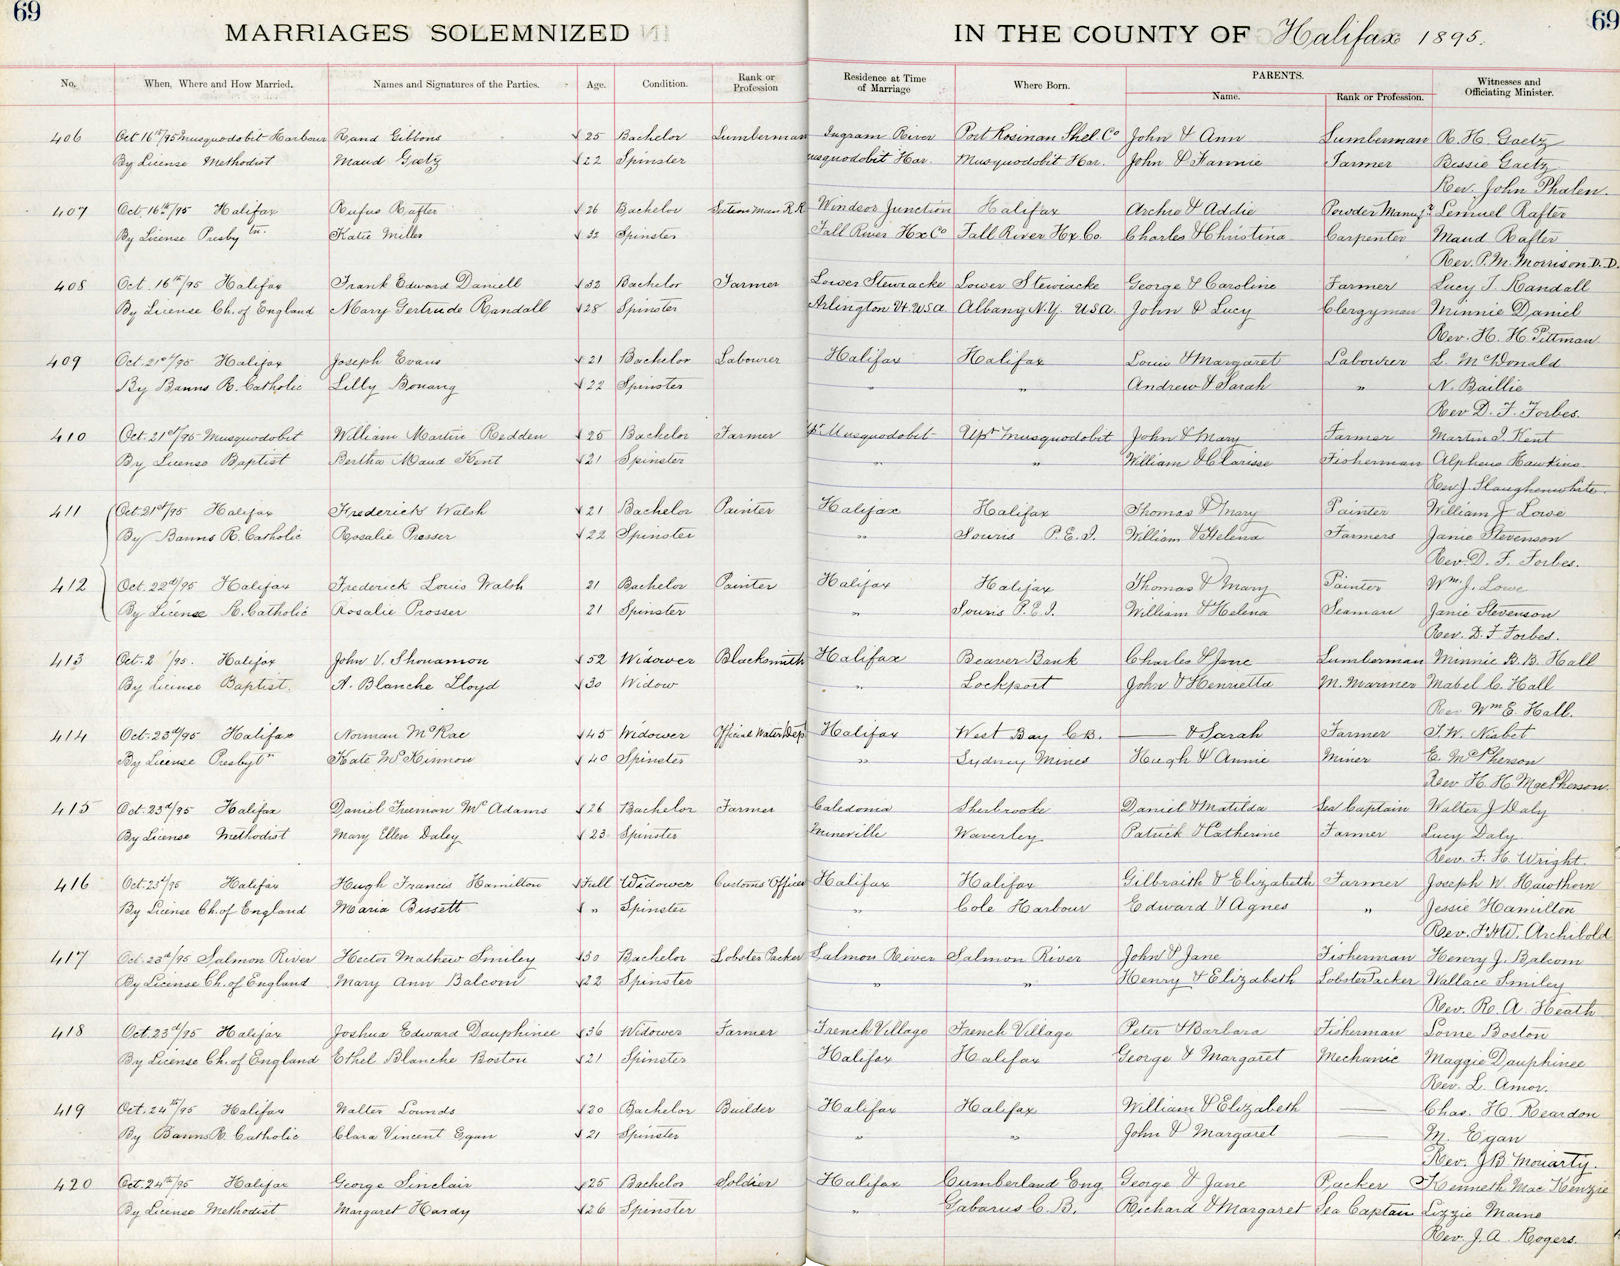 69 69
MARRIAGES SOLEMNIZED IN THE COUNTY OF Halifax 1895.
No. When, Where and How Married. Names and Signatures of the Parties. Age. Condition. Rank or Profession Residence at Time of Marriage Where Born. PARENTS. Name. Rank or Profession. Witnesses and Officiating Minister.
406 Oct 16th/95 Musquodobit Harbour Rand Gibbons 25 Bachelor Lumberman Ingram River Port Shel. Co John & Ann Lumberman R. H. Gaetz
By License Methodist Maud Gaetz 22 Spinster usquodobit Har. Musquodobit Har. John & Fannie Farmer Bessie Gaetz
Rev. John Phalen.
407 Oct. 16th/95 Halifax Rufus Rafter 26 Bachelor Section Man R.R. Windsor Junction Halifax Archie & Addie Powder Manufr Lemuel Rafter
By License Presbytn. Katie Miller 32 Spinster Fall River Hx Co Fall River Hx. Co. Charles & Christina Carpenter Maud Rafter
Rev. P. M. Morrison D. D.
408 Oct. 16th/95 Halifax Frank Edward Daniell 32 Bachelor Farmer Lower Stewiacke Lower Stewiacke George & Caroline Farmer Lucy T. Randall
By License Ch. of England Mary Gertrude Randall 28 Spinster Arlington Vt USA Albany N.Y. USA. John & Lucy Clergyman Minnie Daniel
Rev. H. H. Pittman
409 Oct. 21st/95 Halifax Joseph Evans 21 Bachelor Labourer Halifax Halifax Louis & Margaret Labourer L. McDonald
By Banns R. Catholic Lilly Bonang 22 Spinster " " Andrew & Sarah " N. Baillie
Rev D. F. Forbes.
410 Oct. 21st/95 Musquodobit William Martin Redden 25 Bachelor Farmer Musquodobit Upr Musquodobit John & Mary Farmer Martin I Kent
By License Baptist Bertha Maud Kent 21 Spinster " " William & Clarisse Fisherman Alpheus Hawkins.
Rev. J. Slaughenwhite.
411 Oct 21st/95 Halifax Frederick Walsh 21 Bachelor Painter Halifax Halifax Thomas & Mary Painter William J Lowe
By Banns R. Catholic Rosalie Prosser 22 Spinster " Souris P.E.I. William & Helena Farmers Janie Stevenson
Rev. D. F. Forbes.
412 Oct. 22nd/95 Halifax Frederick Louis Walsh 21 Bachelor Painter Halifax Halifax Thomas & Mary Painter Wm. J. Lowe
By License R. Catholic Rosalie Prosser 21 Spinster " Souris P.E.I. William & Helena Seaman Janie Stevenson
Rev. D. F Forbes.
413 Oct. 2 /95. Halifax John V. Shonamon 52 Widower Blacksmith Halifax Beaver Bank Charles & Jane Lumberman Minnie B. B. Hall
By License Baptist. A. Blanche Lloyd 30 Widow " Lockport John & Henrietta M. Mariner Mabel C. Hall
Rev Wm E. Hall.
414 Oct. 23rd/95 Halifax Norman McRae 45 Widower Official Water Dept Halifax West Bay C.B. — & Sarah Farmer F. W. Nisbet
By License Presbytn Kate McKinnon 40 Spinster " Sydney Mines Hugh & Annie Miner E. McPherson
Rev H. H. MacPherson.
415 Oct. 23rd/95 Halifax Daniel Freeman McAdams 26 Bachelor Farmer Caledonia Sherbrooke Daniel & Matilda Sea Captain Walter J Daly
By License Methodist Mary Ellen Daley 23 Spinster Mineville Waverley Patrick & Catherine Farmer Lucy Daly
Rev. F. H. Wright.
416 Oct. 23d/95 Halifax Hugh Francis Hamilton Full Widower Customs Officer Halifax Halifax Gilbraith & Elizabeth Farmer Joseph W. Hawthorn
By License Ch. of England Maria Bissett " Spinster " Cole Harbour Edward & Agnes " Jessie Hamilton
Rev. F.H.W. Archibold
417 Oct. 23rd/95 Salmon River Hector Mathew Smiley 30 Bachelor Lobster Packer Salmon River Salmon River John & Jane Fisherman Henry J. Balcom
By License Ch. of England Mary Ann Balcom 22 Spinster " " Henry & Elizabeth Lobster Packer Wallace Smiley
Rev. R. A. Heath
418 Oct. 23rd/95 Halifax Joshua Edward Dauphinee 36 Widower Farmer French Village French Village Peter & Barbara Fisherman Lorne Boston
By License Ch. of England Ethel Blanche Boston 21 Spinster Halifax Halifax George & Margaret Mechanic Maggie Dauphinee
Rev. L. Amor.
419 Oct. 24th/95 Halifax Walter Lounds 20 Bachelor Builder Halifax Halifax William & Elizabeth — Chas. H. Reardon
By Banns R. Catholic Clara Vincent Egan 21 Spinster " " John & Margaret — M. Egan
Rev. J B Moriarty.
420 Oct. 24th/95 Halifax George Sinclair 25 Bachelor Soldier Halifax Cumberland Eng George & Jane Packer Kenneth MacKenzie
By License Methodist Margaret Hardy 26 Spinster " Gabarus C.B. Richard & Margaret Sea Captain Lizzie Maine
Rev. J. A. Rogers.